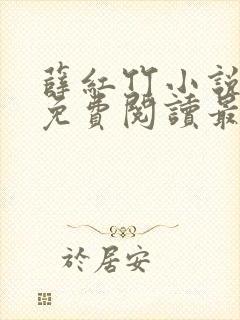 薛紅竹小說
免費閱讀最
於居安